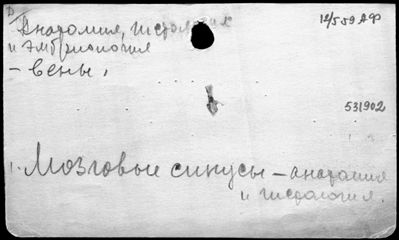 Анатомия, гистология
и эмбриология
– вены,
12/V 59 АФ
531902
1. Мозговые синусы – анатомия
и гистология.